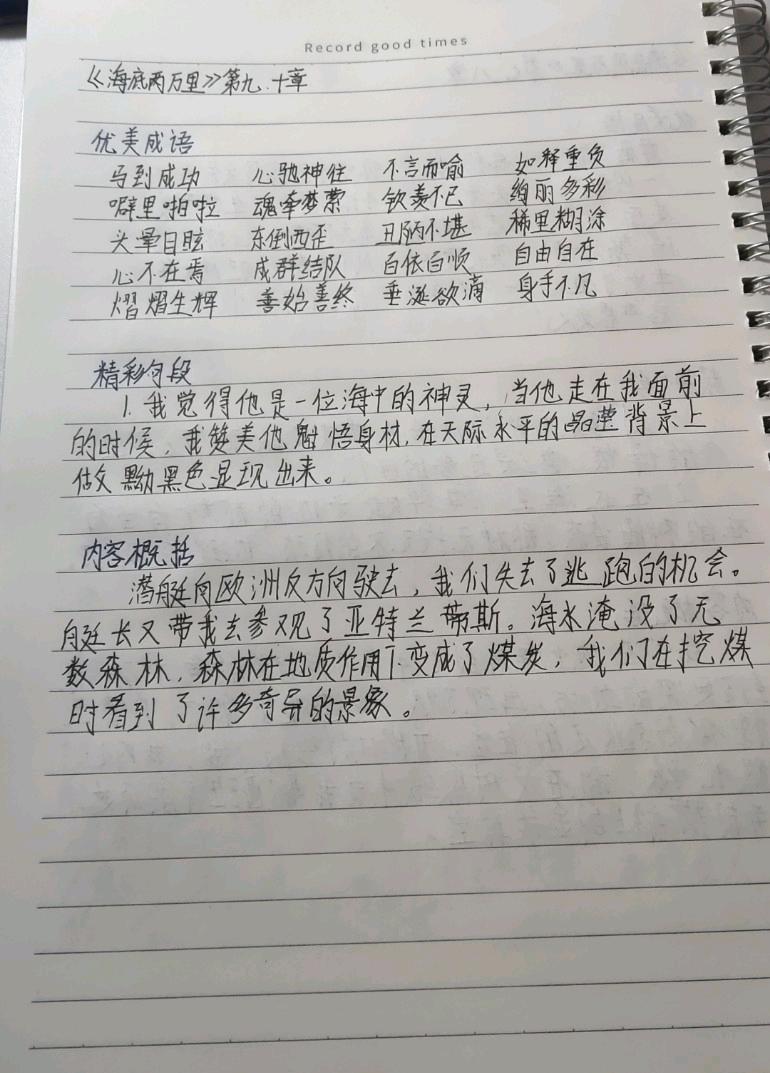 Record good times
《海底两万里》第九.十章
优美成语
马到成功 心驰神往 不言而喻 如释重负
噼里啪啦 魂牵梦萦 钦羡不已 绚丽多彩
头晕目眩 东倒西歪 丑陋不堪 稀里糊涂
心不在焉 成群结队 百依百顺 自由自在
熠熠生辉 善始善终 垂涎欲滴 身手不凡
精彩句段
1. 我觉得他是一位海中的神灵，当他走在我面前
的时候，我赞美他魁悟身材，在天际水平的晶莹背景上
做黝黑色显现出来。
内容概括
潜艇向欧洲反方向驶去，我们失去了逃跑的机会。
艇长又带我去参观了亚特兰蒂斯。海水淹没了无
数森林，森林在地质作用下变成了煤炭，我们在挖煤
时看到了许多奇异的景象。